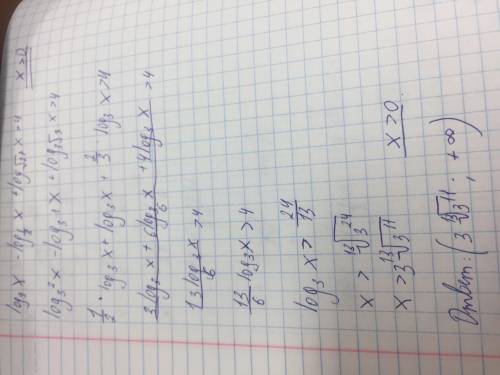 log₉x - log_{1/3} x + log_{√27} x > 4 x > 0
log_{3²} x - log_{3^{-1}} x + log_{√3³} x > 4
1/2 · log₃x + log₃x + 2/3 · log₃x > 4
(3log₃x + 6log₃x + 4log₃x)/6 > 4
13log₃x/6 > 4
13/6 log₃x > 4
log₃x > 24/13
x > ¹³√3²⁴
x > 3 ¹³√3¹¹ x > 0
Ответ: (3 ¹³√3¹¹ ; +∞)